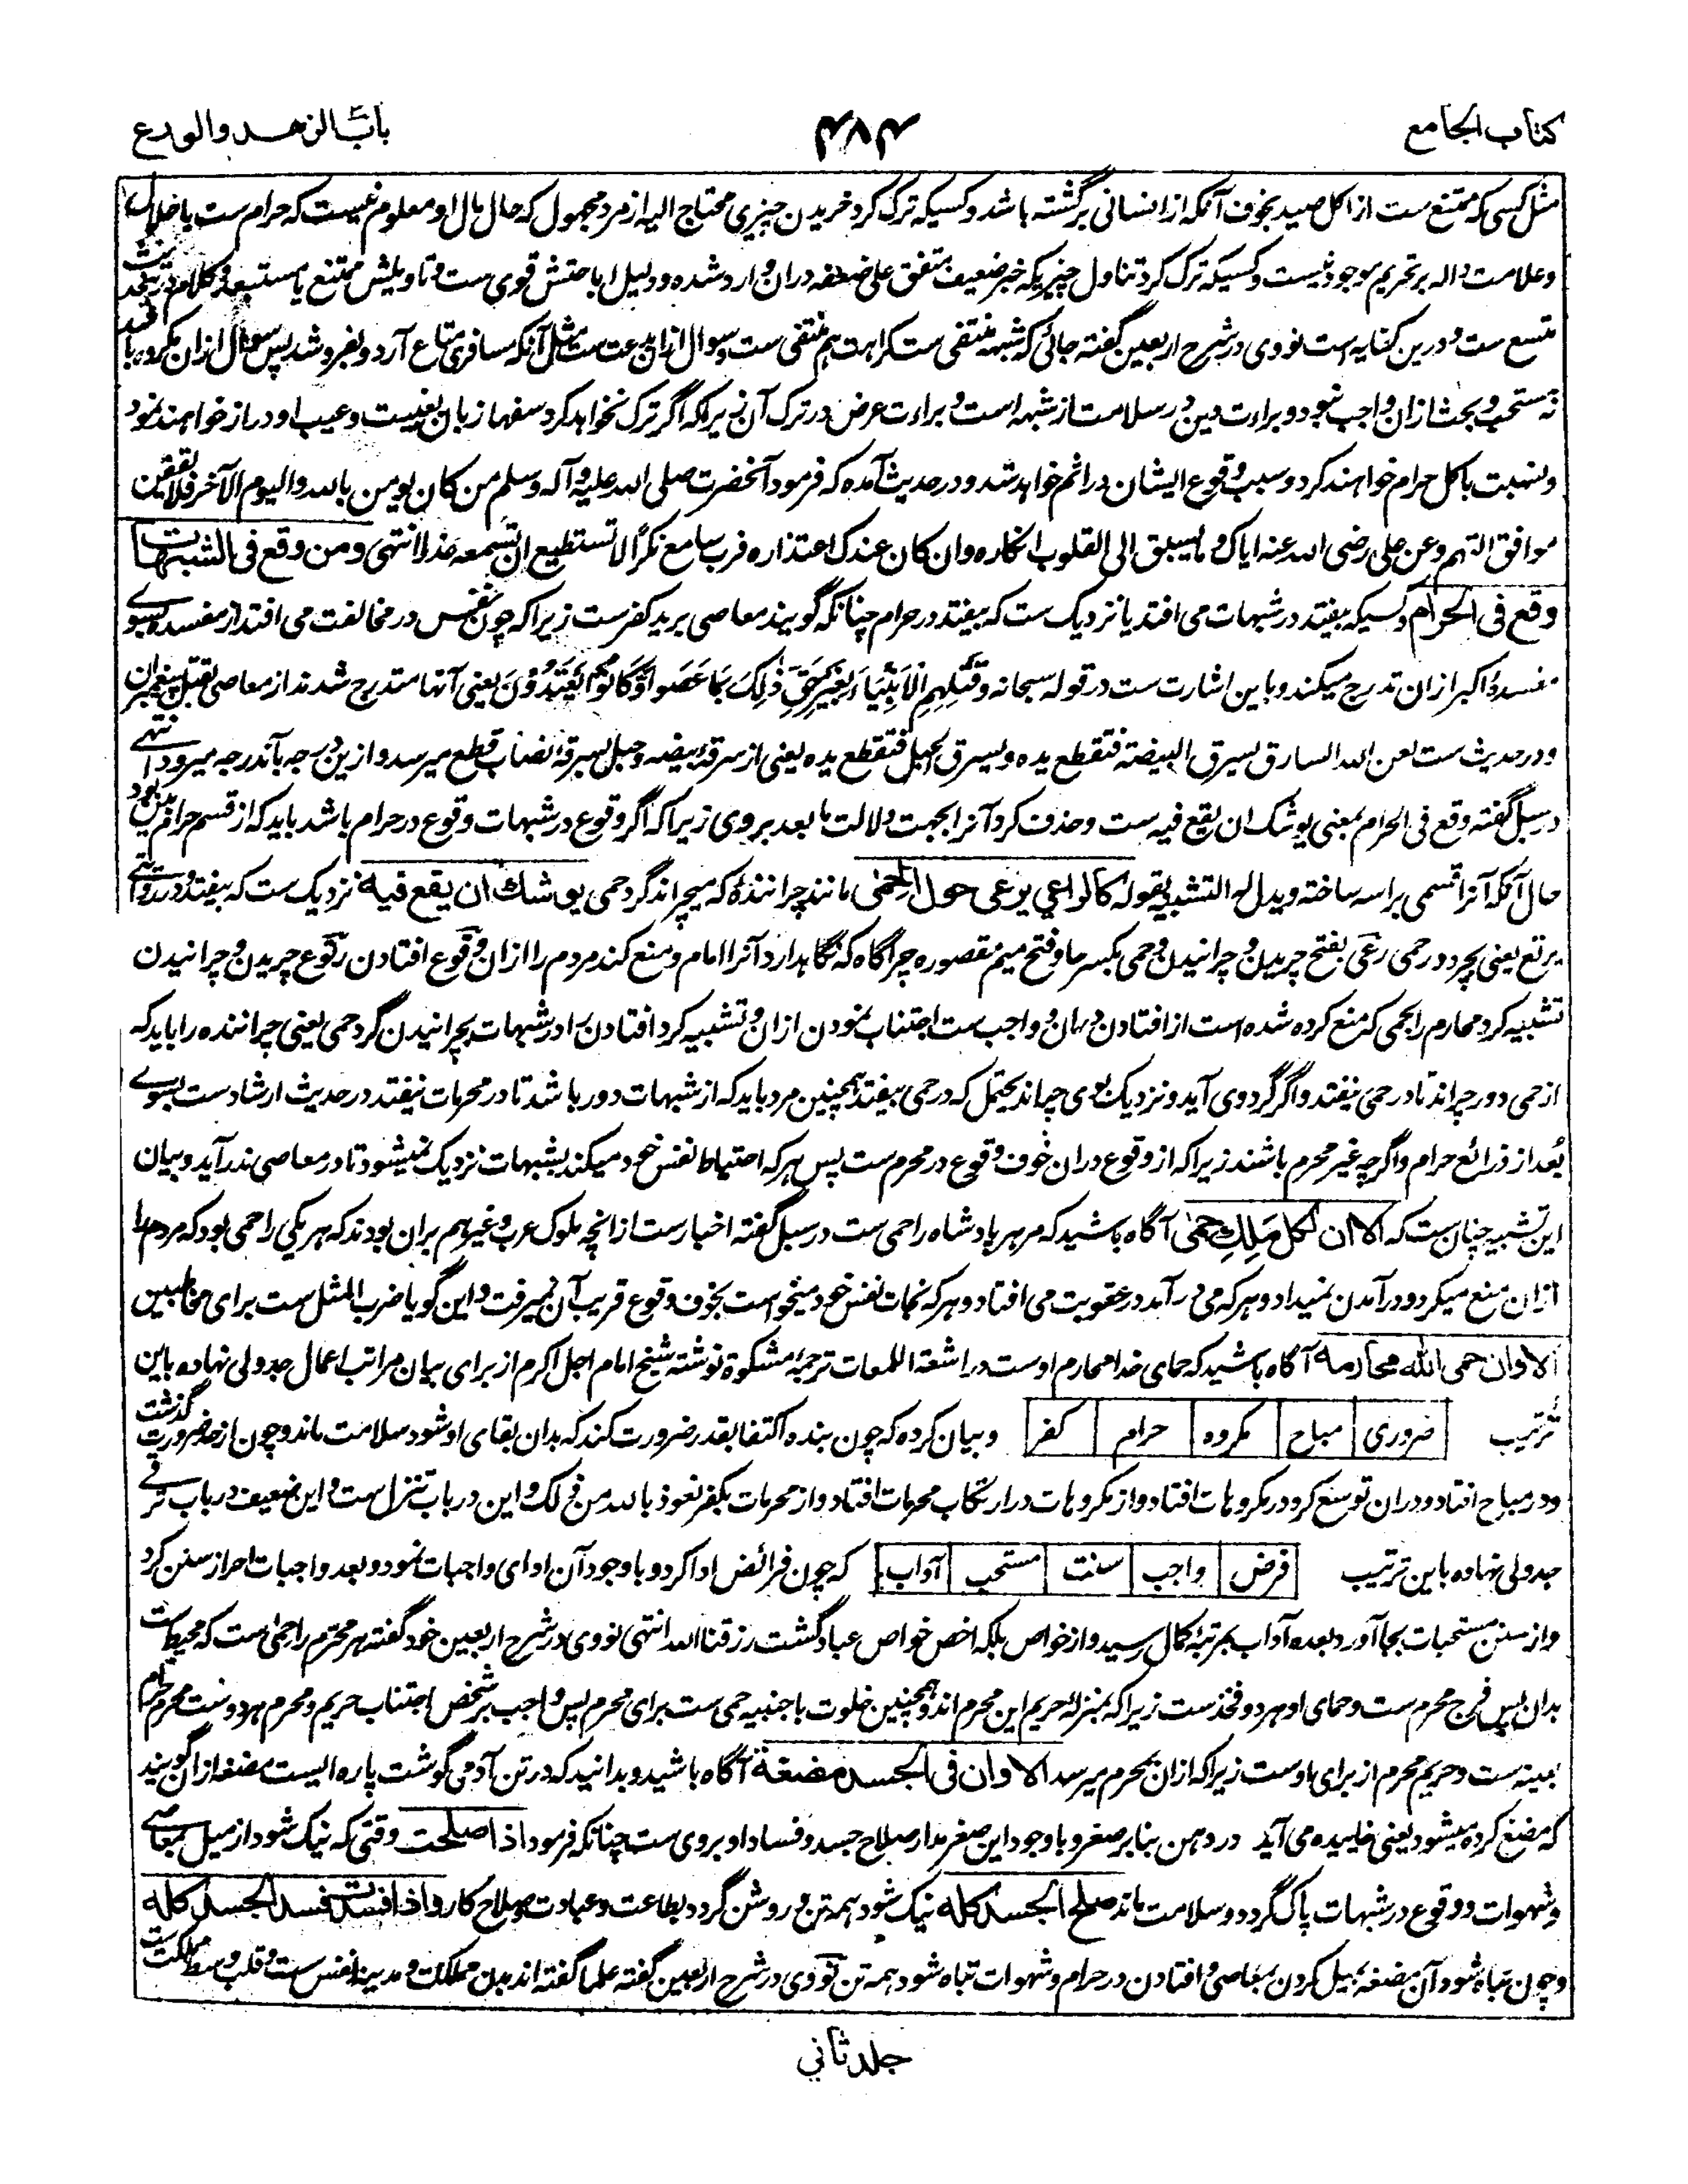 کتاب الجامع
۴۷۴
باب الزهد والورع
مثل کسی که ممتنع ست از اکل صید بخوف آنکه از انسانی برگشته باشد و کسیکه ترک کرد خریدن چیزی محتاج الیه از مرد مجهول که حال مال او معلوم نیست که حرام ست یا حلال
و علامت داله بر تحریم موجود نیست و کسیکه ترک کرد تناول چیزیکه خبر ضعیف متفق علی ضعفه دران وارد شده و دلیل اباحتش قوی ست و تاویلش ممتنع یا مستبعد و کلام درین بحث
متسع ست و درین کفایه است نووی در شرح اربعین گفته جائی که شبهه منتفی ست کراهت هم منتفی ست و سوال ازان بدعت ست مثل آنکه مسافری متاع آرد و بفروشد پس سوال ازان مکروه باشد
نه مستحب و بحث ازان واجب نبود و براءت دین در سلامت از شبهه است و براءت عرض در ترک آن زیراکه اگر ترک نخواهد کرد سفها زبان بغیبت و عیب او دراز خواهند نمود
و نسبت باکل حرام خواهند کرد و سبب وقوع ایشان در اثم خواهد شد و در حدیث آمده که فرمود آنحضرت صلی الله علیه و آله وسلم من کان یومن بالله والیوم الآخر فلا یقفن
مواقف التهم و عن علی رضی الله عنه ایاک و ما یسبق الی القلوب انکاره وان کان عندک اعتذاره فرب سامع نکرا لا تستطیع ان تسمعه عذرا انتهی ومن وقع فی الشبهات
وقع فی الحرام و کسیکه بیفتد در شبهات می افتد یا نزدیک ست که بیفتد در حرام چنانکه گویند معاصی برید کفر ست زیرا که چون نفس در مخالفت می افتد از مفسده بسوے
مفسدهٔ اکبر ازان تدرج میکند و باین اشارت ست در قوله سبحانه وَقَتْلِهِمُ الْأَنْبِیَاءَ بِغَیْرِ حَقٍّ ذٰلِکَ بِمَا عَصَوْا وَّکَانُوْا یَعْتَدُوْنَ یعنی آنها متدرج شدند از معاصی بقتل پیغمبران
و در حدیث ست لعن الله السارق یسرق البیضة فتقطع یده ویسرق الحبل فتقطع یده یعنی از سرقهٔ بیضه و حبل بسرقهٔ نصاب قطع میرسد و ازین درجه بآندرجه میرود انتهے
در سبل گفته وقع فی الحرام بمعنی یوشک ان یقع فیه ست و حذف کرد آنرا بجهت دلالت ما بعد بروی زیرا که اگر وقوع در شبهات وقوع در حرام باشد باید که از قسم حرام بین بود
حال آنکه آنرا قسمی براسه ساخته ویدل له التشبیه بقوله کالراعی یرعی حول الحمی مانند چرانندهٔ که میچراند گرد حمی یوشک ان یقع فیه نزدیک ست که بیفتد و در روایتے
یرتع یعنی بچرد در حمی رعی بفتح چریدن و چرانیدن و حمی بکسر حا و فتح میم مقصوره چراگاه که نگاهدارد آنرا امام و منع کند مردم را ازان و وقوع افتادن رتوع چریدن و چرانیدن
تشبیه کرد محارم را بحمی که منع کرده شده است از افتادن دران و واجب ست اجتناب نمودن ازان و تشبیه کرد افتادن را در شبهات بچرانیدن گرد حمی یعنی چراننده را باید که
از حمی دور چراند تا در حمی نیفتد و اگر گرد وی آید و نزدیک بوی چراند یحتمل که در حمی بیفتد همچنین مرد باید که از شبهات دور باشد تا در محرمات نیفتد در حدیث ارشادست بسوے
بُعد از ذرائع حرام و اگرچه غیر محرم باشند زیرا که از وقوع دران خوف وقوع در محرم ست پس هر که احتیاط نفس خود میکند بشبهات نزدیک نمیشود تا در معاصی ندرآید و بیان
این تشبیه چنان ست که الا ان لکل مَلِکٍ حمی آگاه باشید که مر هر پادشاه را حمی ست در سبل گفته اخبار ست از انچه ملوک عرب و غیرهم بران بودند که هر یکی را حمی بود که مردم را
ازان منع میکرد و در آمدن نمیداد و هر که می درآمد در عقوبت می افتاد و هر که نجات نفس خود میخواست بخوف وقوع قریب آن نمیرفت و این گویا ضرب المثل ست برای مخاطبین
الا وان حمی الله محارمه آگاه باشید که حمای خدا محارم اوست در اشعة اللمعات ترجمهٔ مشکوة نوشته شیخ امام اجل اکرم از برای بیان مراتب اعمال جدولی نهاده باین
ترتیب ضروری مباح مکروه حرام کفر و بیان کرده که چون بنده اکتفا بقدر ضرورت کند که بدان بقای او شود سلامت ماند و چون از حد ضرورت گذشت
و در مباح افتاد و دران توسع کرد در مکروهات افتاد و از مکروهات در ارتکاب محرمات افتاد و از محرمات بکفر نعوذ بالله من ذلک و این در باب تنزل ست و این ضعیف در باب ترقے
جدولی نهاده باین ترتیب فرض واجب سنت مستحب آداب که چون فرائض ادا کرد و باوجود آن ادای واجبات نمود و بعد واجبات احراز سنن کرد
و از سنن مستحبات بجا آورد بعده آداب بمرتبهٔ کمال رسید و از خواص بلکه اخص خواص عباد گشت رزقنا الله انتهی نووی در شرح اربعین خود گفته هر محترم را حمی ست که محیط ست
بدان پس فرج محرم ست و حمای او هر دو فخذ ست زیرا که بمنزلهٔ حریم این محرم اند و همچنین خلوت با جنبیه حمی ست برای محرم پس واجب بر شخص اجتناب حریم و محرم هر دو ست محرم حرام
بعینه ست و حریم محرم از برای اوست زیرا که ازان بمحرم میرسد الا وان فی الجسد مضغة آگاه باشید و بدانید که در تن آدمی گوشت پاره ایست مضغه ازان گویند
که مضغ کرده میشود یعنی خائیده می آید در دهن بنابر صغر و باوجود این صغر مدار صلاح جسد و فساد او بروی ست چنانکه فرمود اذا صلحت وقتی که نیک شود از میل بمعاصے
و شهوات و وقوع در شبهات پاک گردد و سلامت ماند صلح الجسد کله نیک شود همه تن و روشن گردد بطاعت و عبادت و صلاح کار واذا فسدت فسد الجسد کله
و چون تباه شود آن مضغه بمیل کردن بمعاصی و افتادن در حرام و شهوات تباه شود همه تن نووی در شرح اربعین گفته علما گفته اند بدن مملکت و مدینهٔ نفس ست و قلب وسط مملکت ست
جلد ثانی